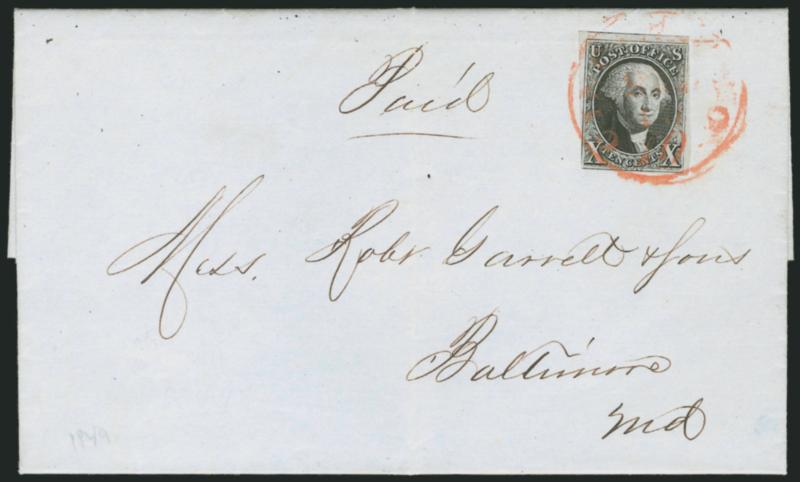 Paid
U S
POST OFFICE
X TEN CENTS X
Mess. Robt Garrett & Sons
Baltimore
Md
1849